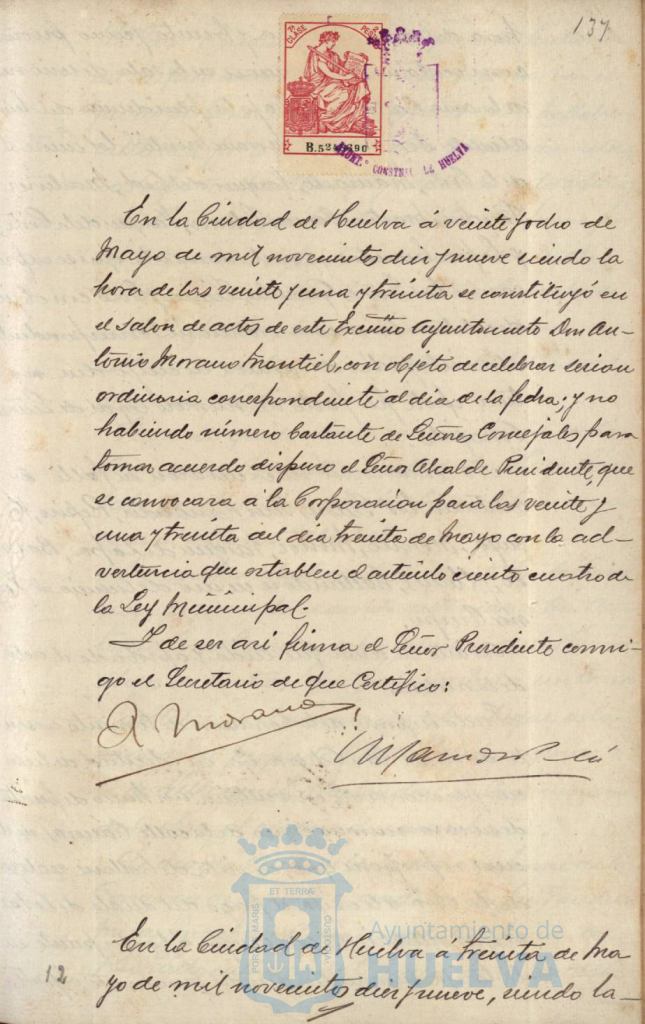 137
7ª CLASE
B.5246390
AYUNT.º CONSTNAL DE HUELVA
En la Ciudad de Huelva á veinte y ocho de
Mayo de mil novecientos diez y nueve siendo la
hora de las veinte y una y treinta se constituyó en
el salon de actos de este Excmo Ayuntamiento Don An-
tonio Morano Montiel, con objeto de celebrar sesion
ordinaria correspondiente al dia de la fecha; y no
habiendo número bastante de Señores Concejales para
tomar acuerdo dispuso el Señor Alcalde Presidente, que
se convocara á la Corporacion para las veinte y
una y treinta del dia treinta de Mayo con la ad-
vertencia que establece el artículo ciento cuatro de
la Ley Municipal.
Y de ser asi firma el Señor Presidente conmi-
go el Secretario de que Certifico:
A Morano
ET TERRÆ
PORTUS MARIS
CUSTODIA
Ayuntamiento de
HUELVA
En la Ciudad de Huelva á treinta de Ma
12
yo de mil novecientos diez y nueve, siendo la-